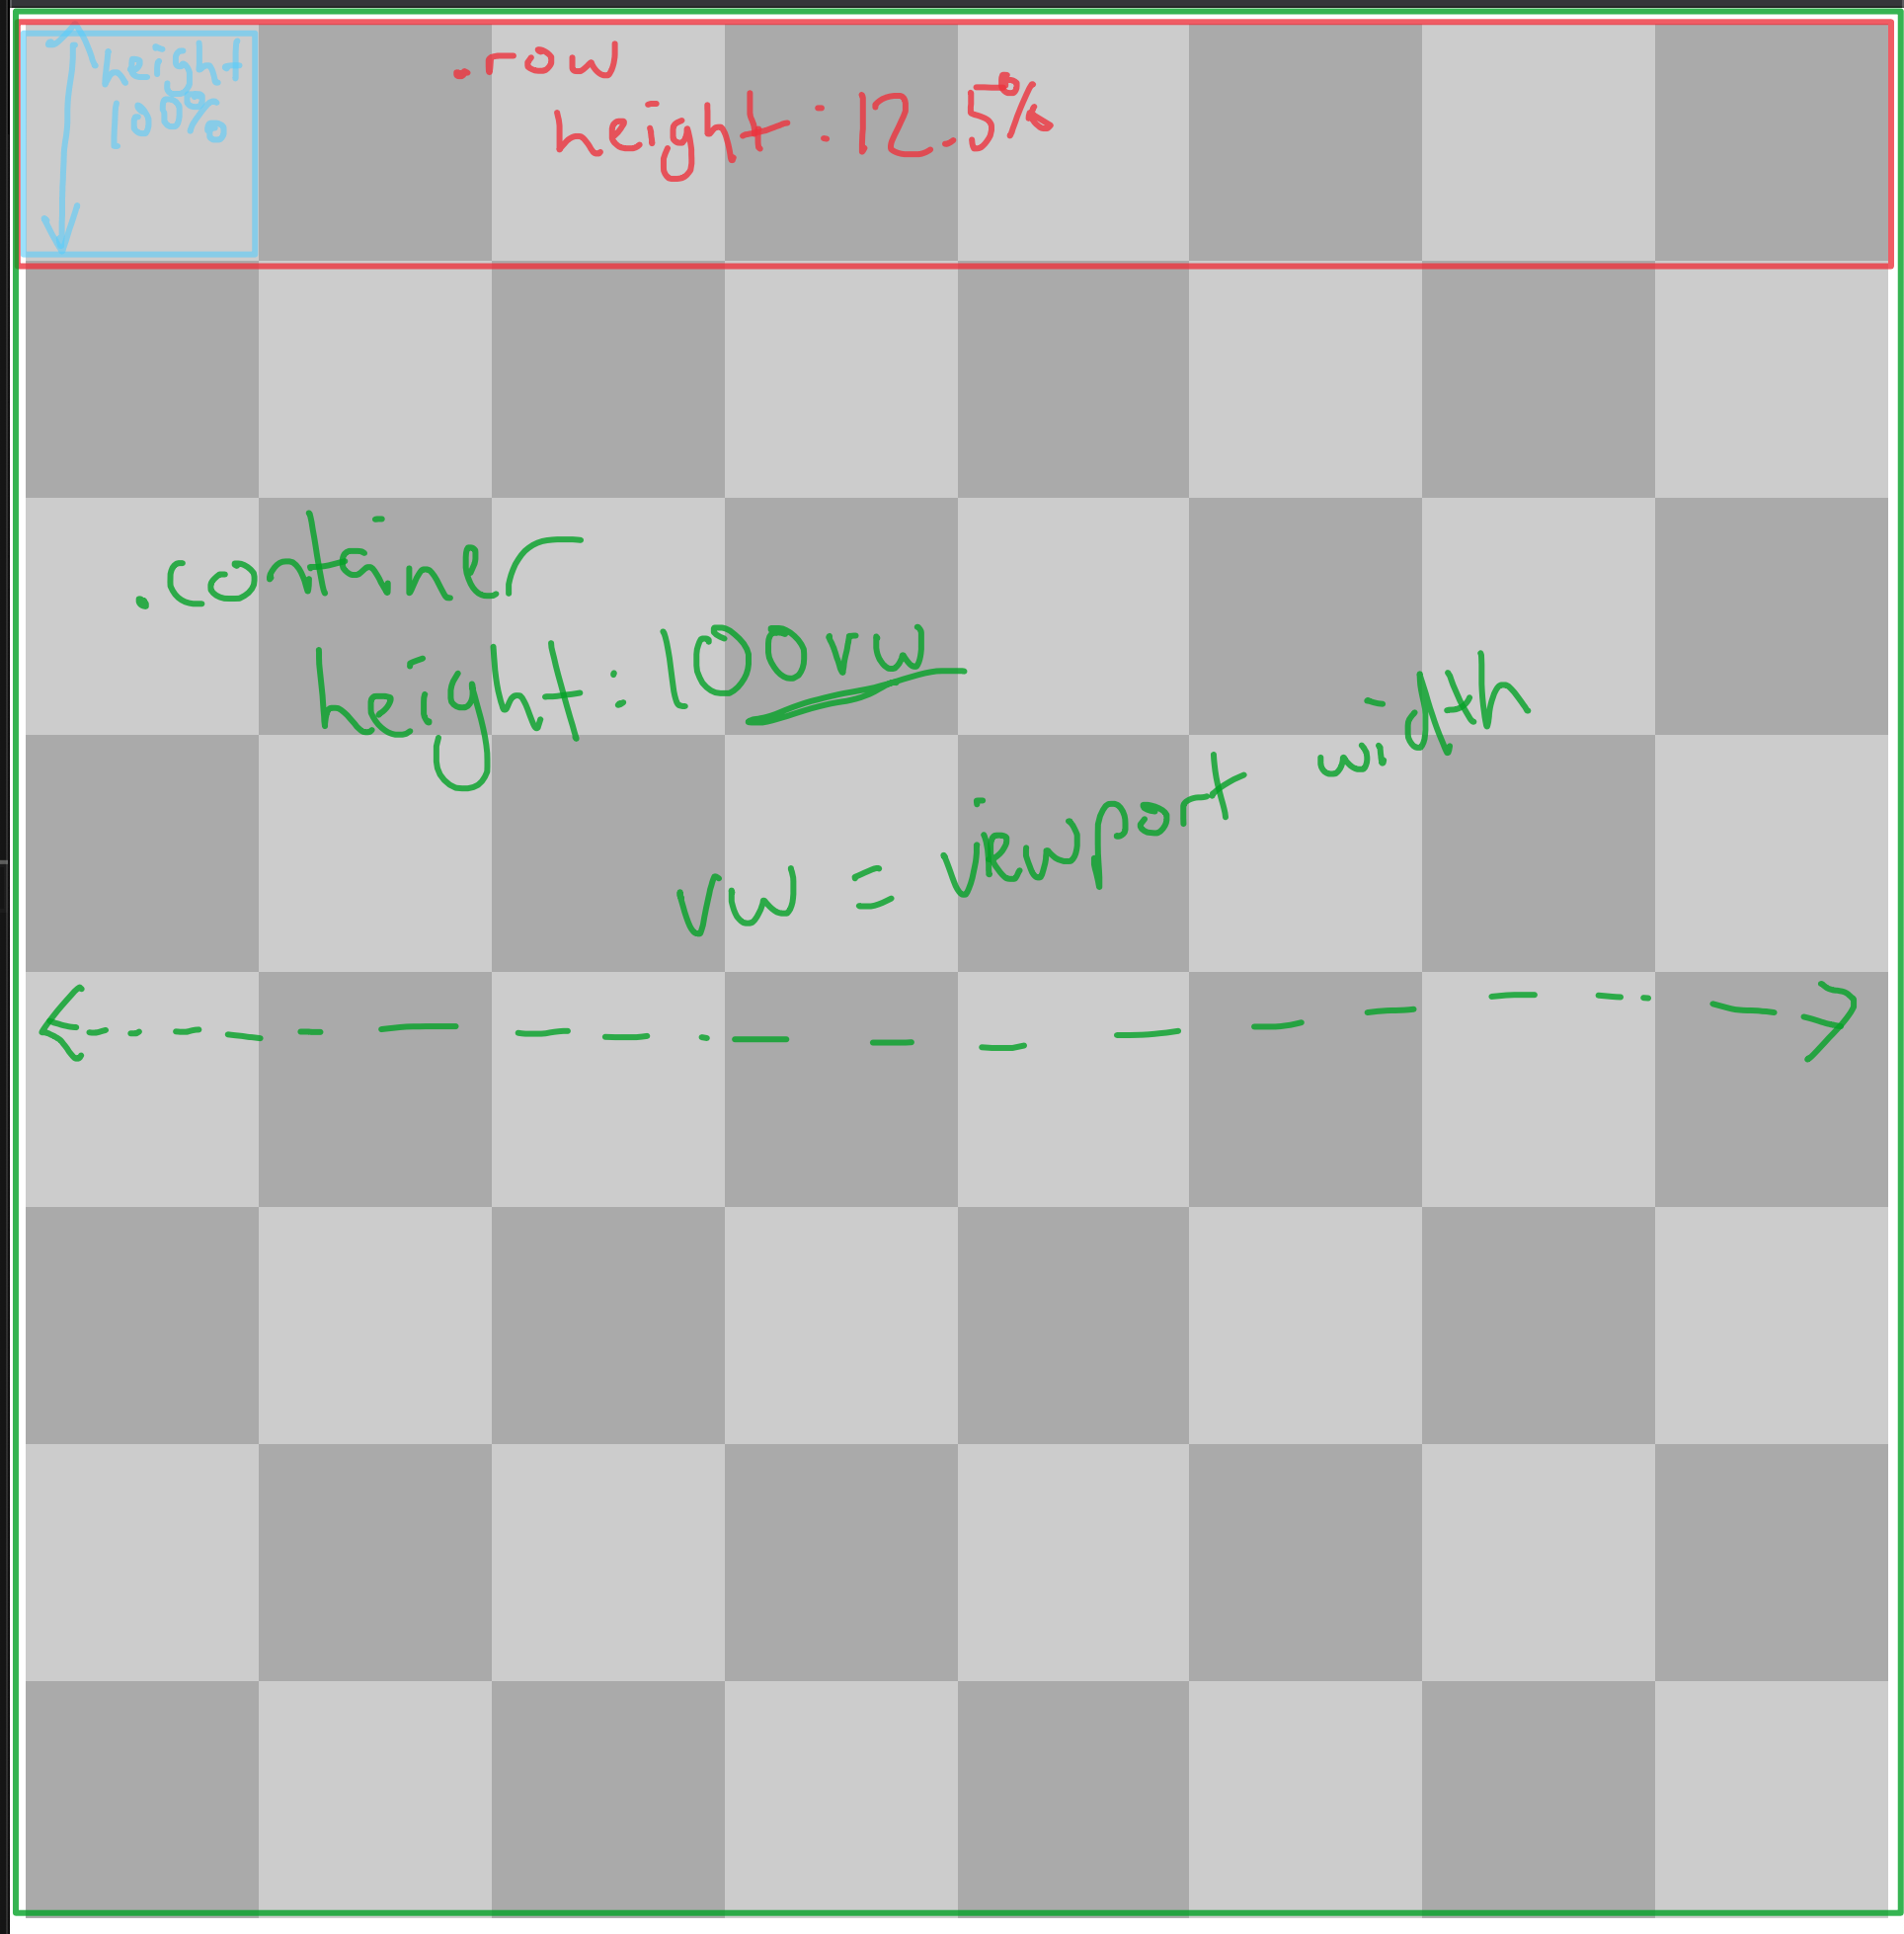 height
100%
.row
height: 12.5%
.container
height: 100vw
vw = viewport width